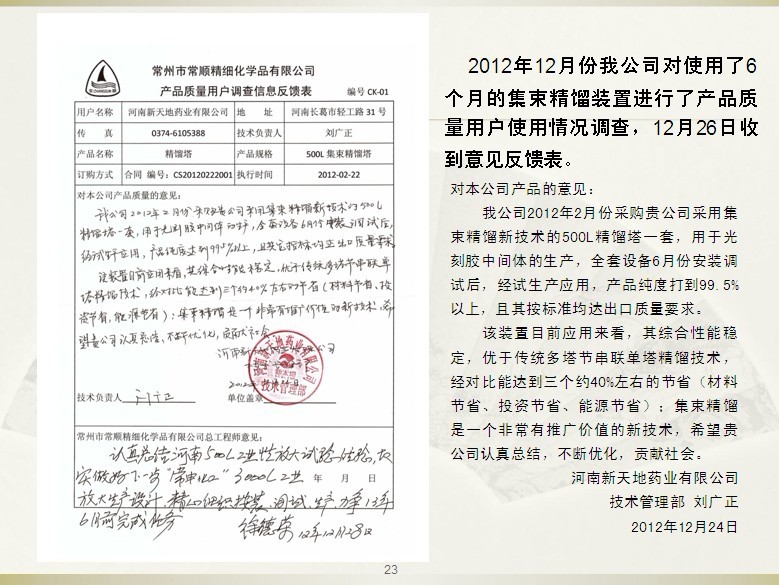 常州市常顺精细化学品有限公司
产品质量用户调查信息反馈表 编号 CK-01
用户名称 河南新天地药业有限公司 地 址 河南长葛市轻工路 31 号
传 真 0374-6105388 技术负责人 刘广正
产品名称 精馏塔 产品规格 500L 集束精馏塔
订购方式 合同 编号：CS20120222001 执行时间 2012-02-22
对本公司产品质量的意见：
我公司2012年2月份采购贵公司采用集束精馏新技术的500L
精馏塔一套，用于光刻胶中间体的生产，全套设备6月份安装调试后，
经试生产应用，产品纯度达到99.5%以上，且其按标准均达出口质量要求。
该装置目前应用来看，其综合性能稳定，优于传统多塔节串联单
塔精馏技术，经对比能达到三个约40%左右的节省（材料节省、投
资节省、能源节省）；集束精馏是一个非常有推广价值的新技术，希
望贵公司认真总结，不断优化，贡献社会。
技术管理部
技术负责人 刘广正 单位盖章
常州市常顺精细化学品有限公司总工程师意见：
认真总结河南500L工业性放大试验经验，切
实做好下一步 3000L工业 年 月 日
放大生产设计，精心组织安装、调试、生产，力争13年
6月前完成任务
徐德英 12年12月28日
2012年12月份我公司对使用了6
个月的集束精馏装置进行了产品质
量用户使用情况调查，12月26日收
到意见反馈表。
对本公司产品的意见：
我公司2012年2月份采购贵公司采用集
束精馏新技术的500L精馏塔一套，用于光
刻胶中间体的生产，全套设备6月份安装调
试后，经试生产应用，产品纯度打到99.5%
以上，且其按标准均达出口质量要求。
该装置目前应用来看，其综合性能稳
定，优于传统多塔节串联单塔精馏技术，
经对比能达到三个约40%左右的节省（材料
节省、投资节省、能源节省）；集束精馏
是一个非常有推广价值的新技术，希望贵
公司认真总结，不断优化，贡献社会。
河南新天地药业有限公司
技术管理部 刘广正
2012年12月24日
23